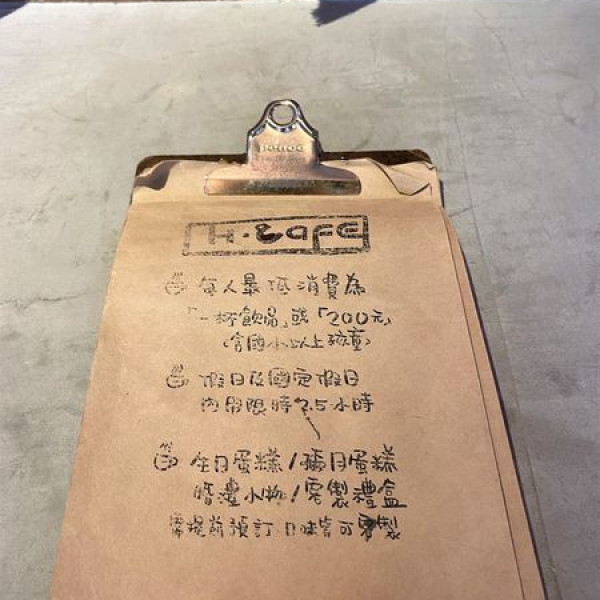 H·Cafe
每人最低消費為
「一杯飲品」或「200元」
(含國小以上孩童)
假日及國定假日
內用限時2.5小時
生日蛋糕/彌月蛋糕
婚禮小物/客製禮盒
需提前預訂.口味皆可客製